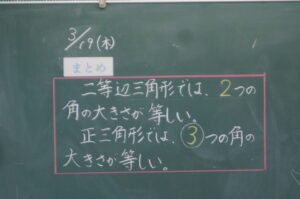 3/19(木)
まとめ
二等辺三角形では、2つの
角の大きさが等しい。
正三角形では、③つの角の
大きさが等しい。